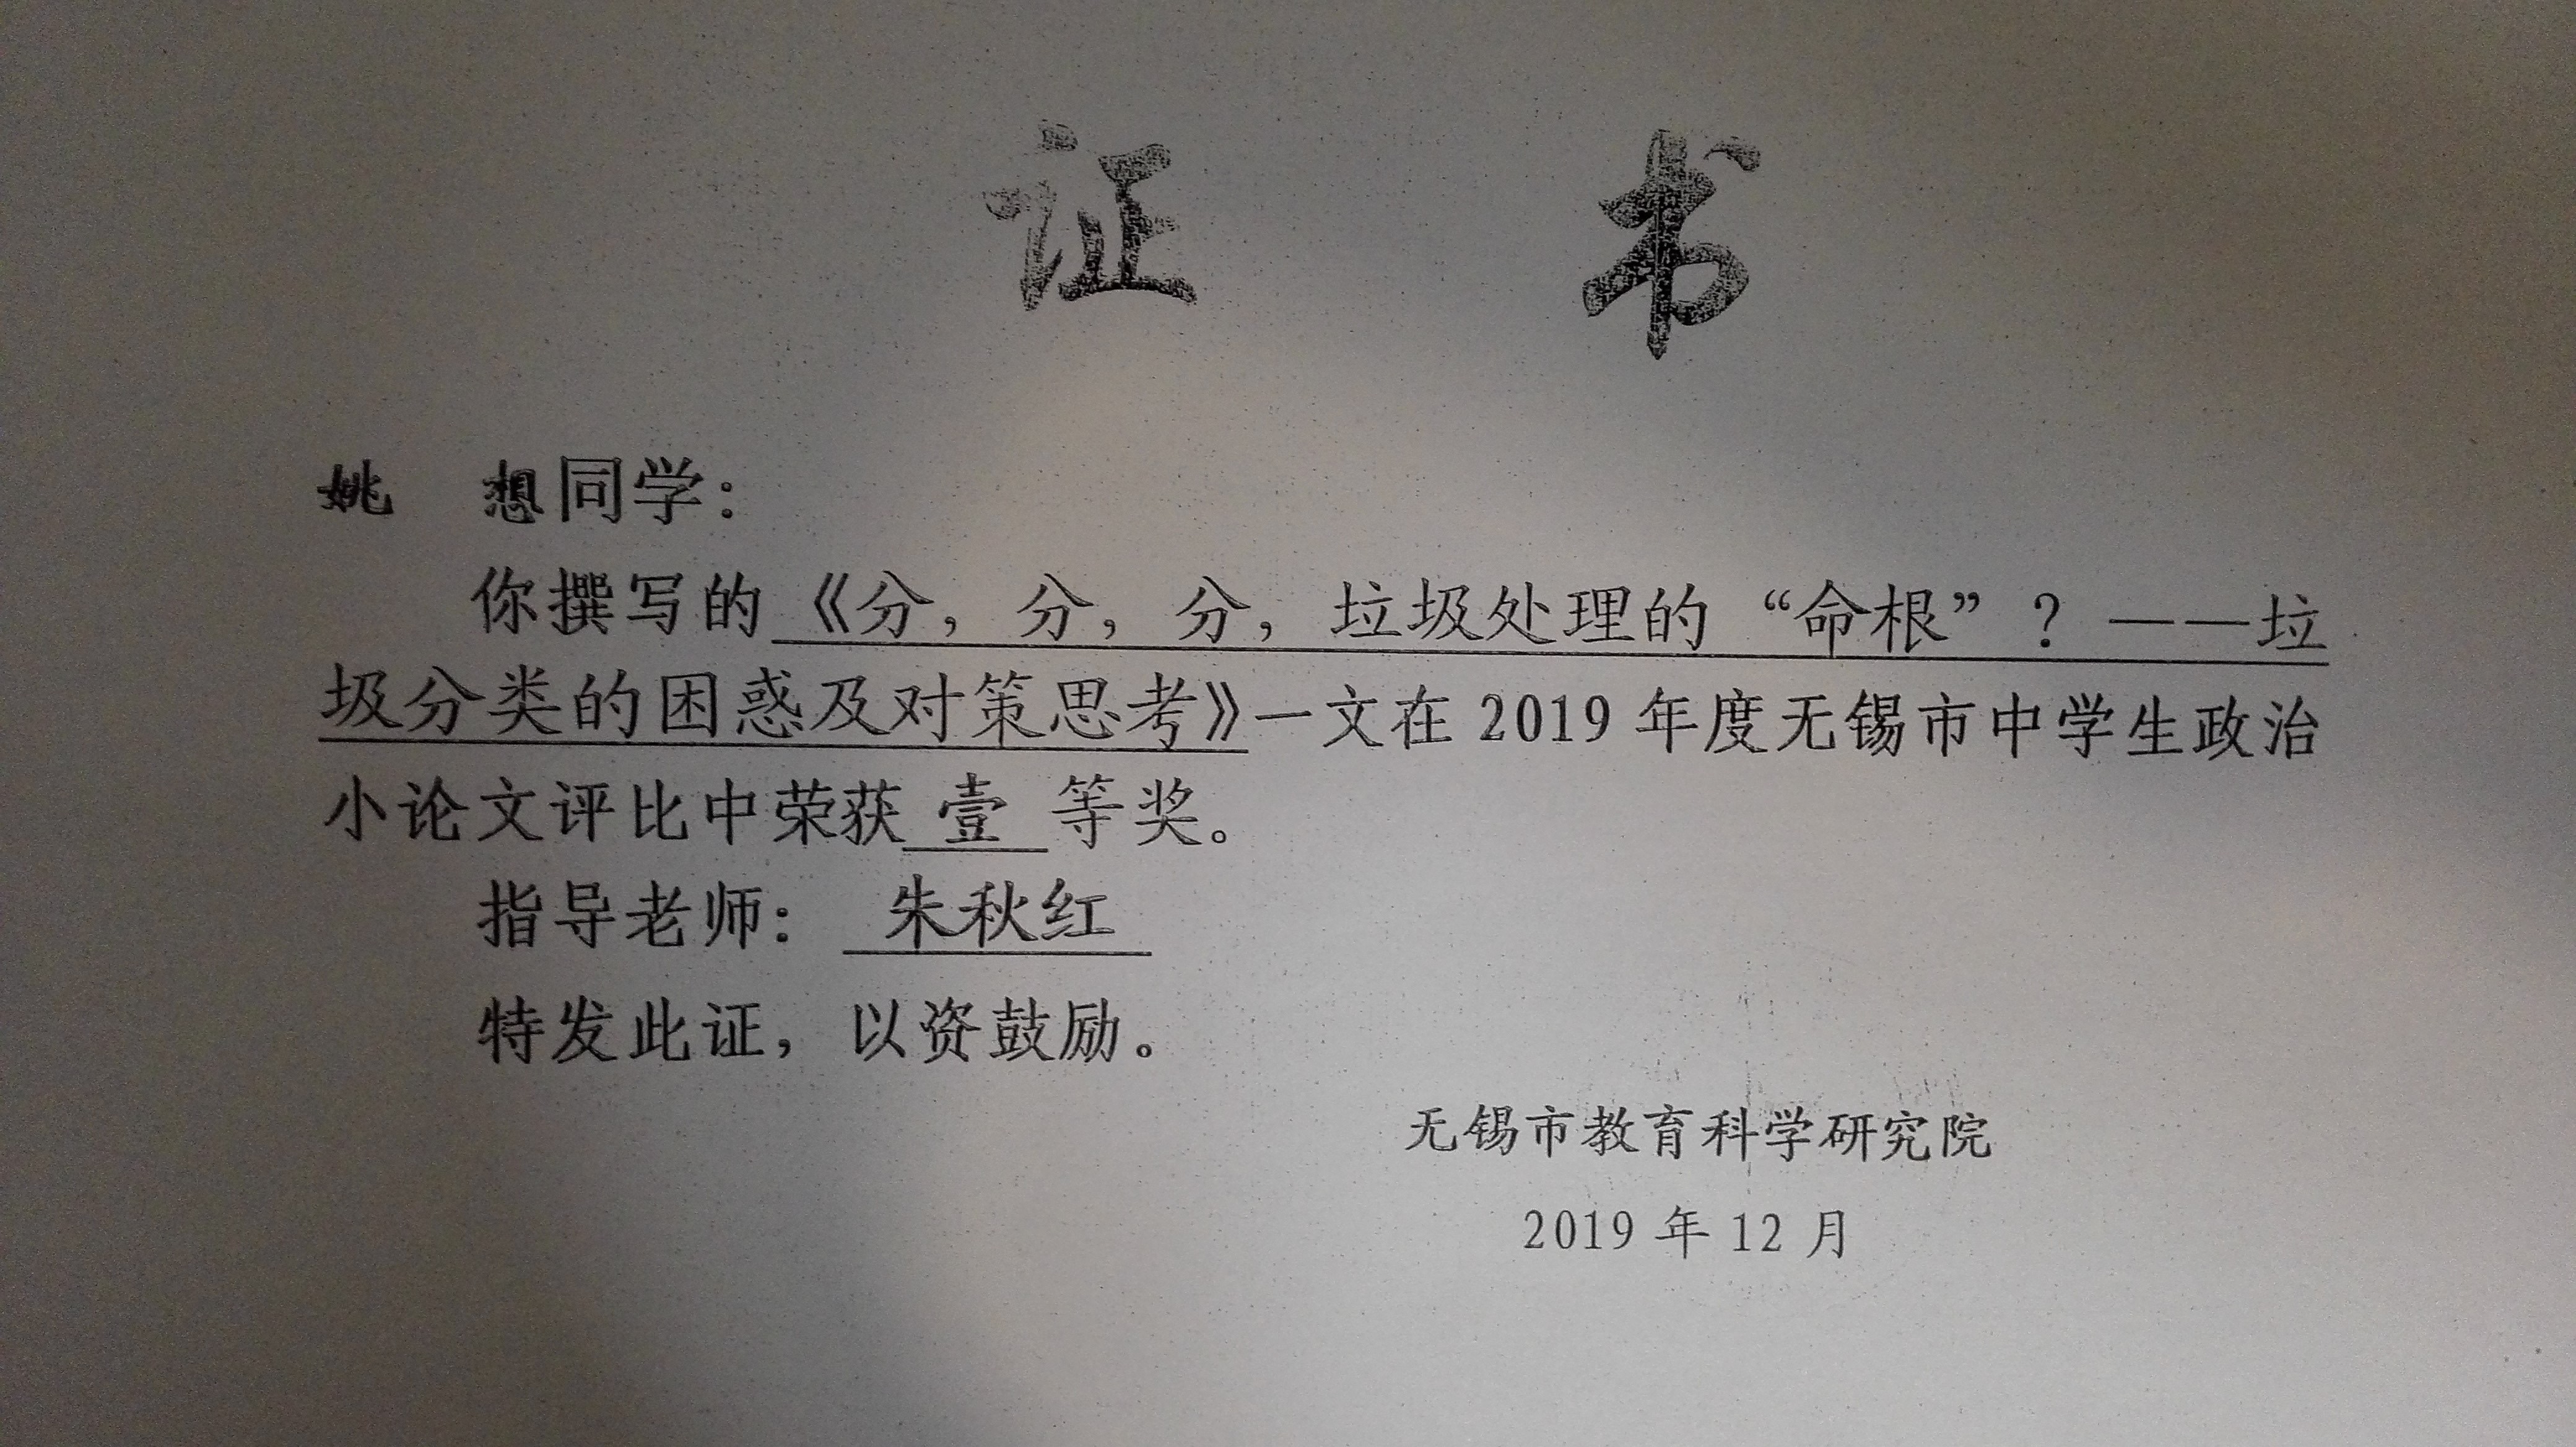 证 书
姚 想同学：
你撰写的《分，分，分，垃圾处理的“命根”？——垃
圾分类的困惑及对策思考》一文在 2019 年度无锡市中学生政治
小论文评比中荣获 壹 等奖。
指导老师： 朱秋红
特发此证，以资鼓励。
无锡市教育科学研究院
2019 年 12 月